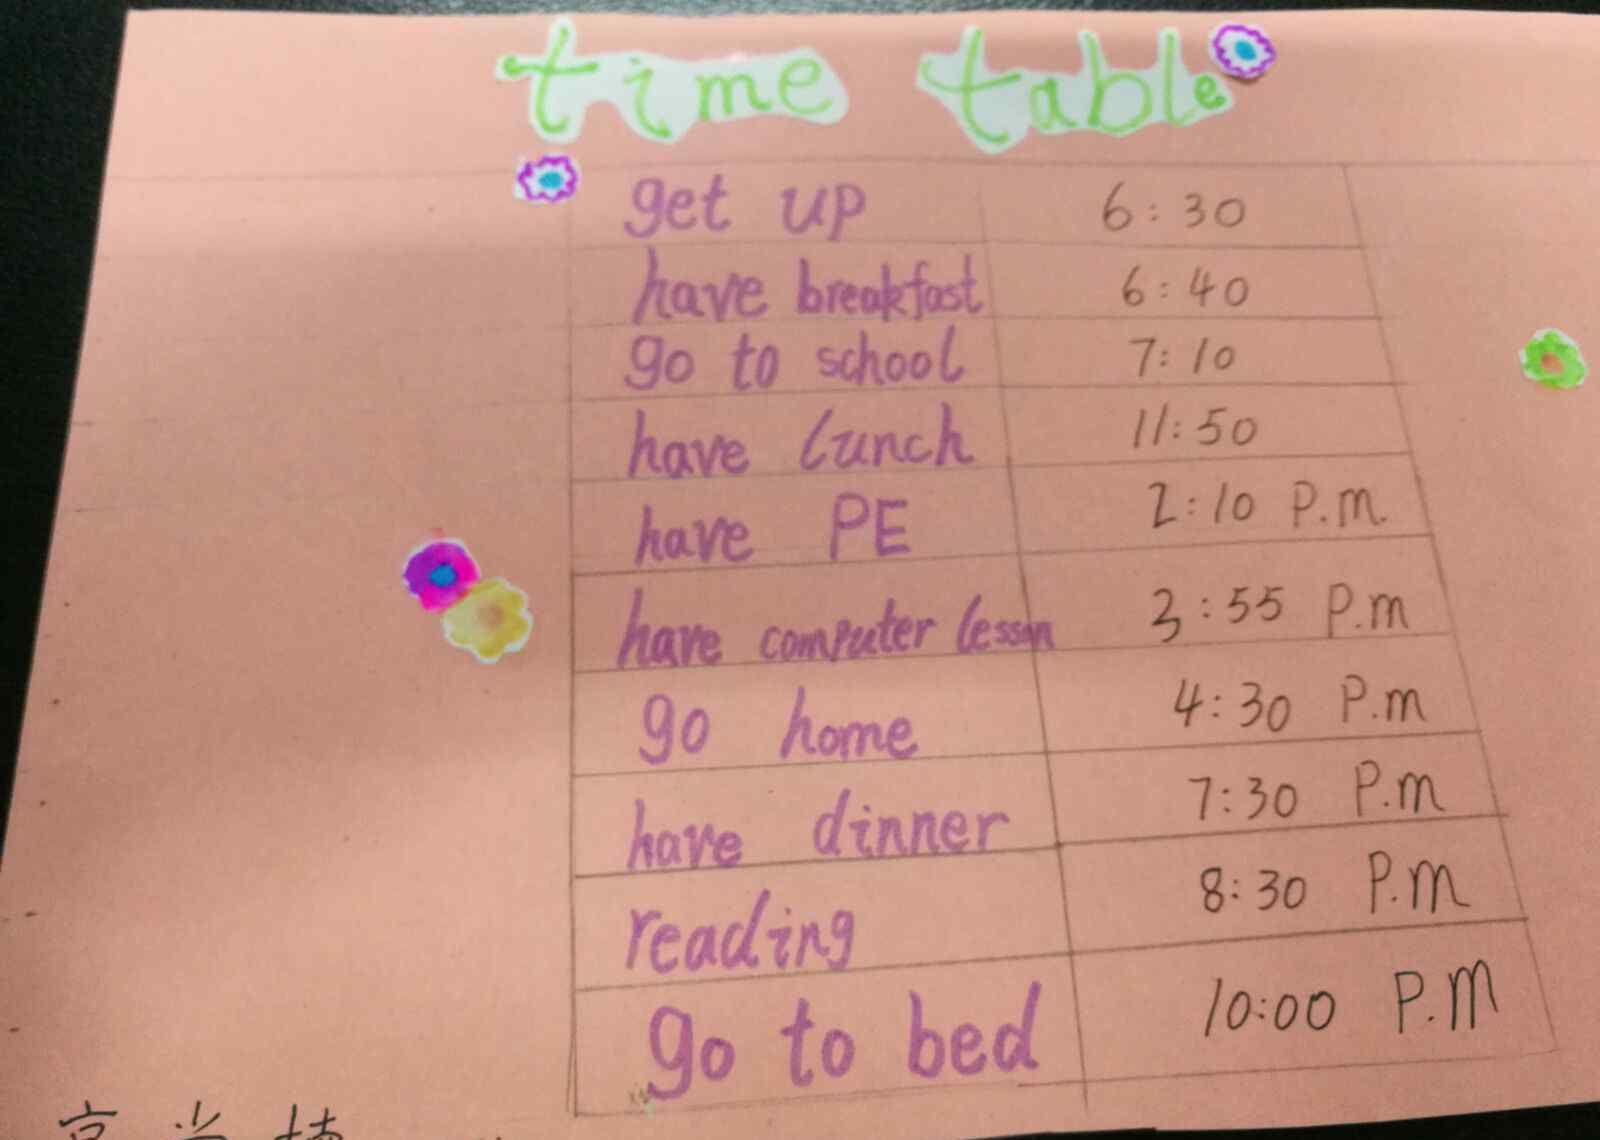 time table
get up 6:30
have breakfast 6:40
go to school 7:10
have lunch 11:50
have PE 2:10 P.m.
have computer lesson 3:55 P.m
go home 4:30 P.m
have dinner 7:30 P.m
reading 8:30 P.m
go to bed 10:00 P.M